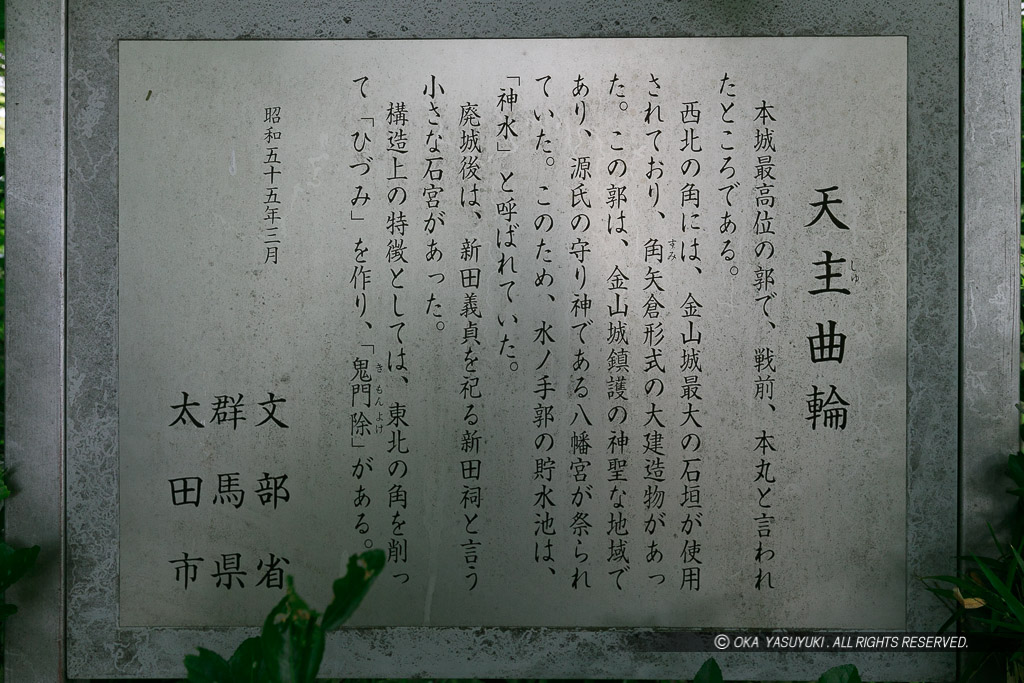 天主曲輪
しゅ
本城最高位の郭で、戦前、本丸と言われ
たところである。
西北の角には、金山城最大の石垣が使用
されており、角矢倉形式の大建造物があっ
すみ
た。この郭は、金山城鎮護の神聖な地域で
あり、源氏の守り神である八幡宮が祭られ
ていた。このため、水ノ手郭の貯水池は、
「神水」と呼ばれていた。
廃城後は、新田義貞を祀る新田祠と言う
小さな石宮があった。
構造上の特徴としては、東北の角を削っ
て「ひづみ」を作り、「鬼門除」がある。
きもんよけ
昭和五十五年三月
文部省
群馬県
太田市
© OKA YASUYUKI . ALL RIGHTS RESERVED.